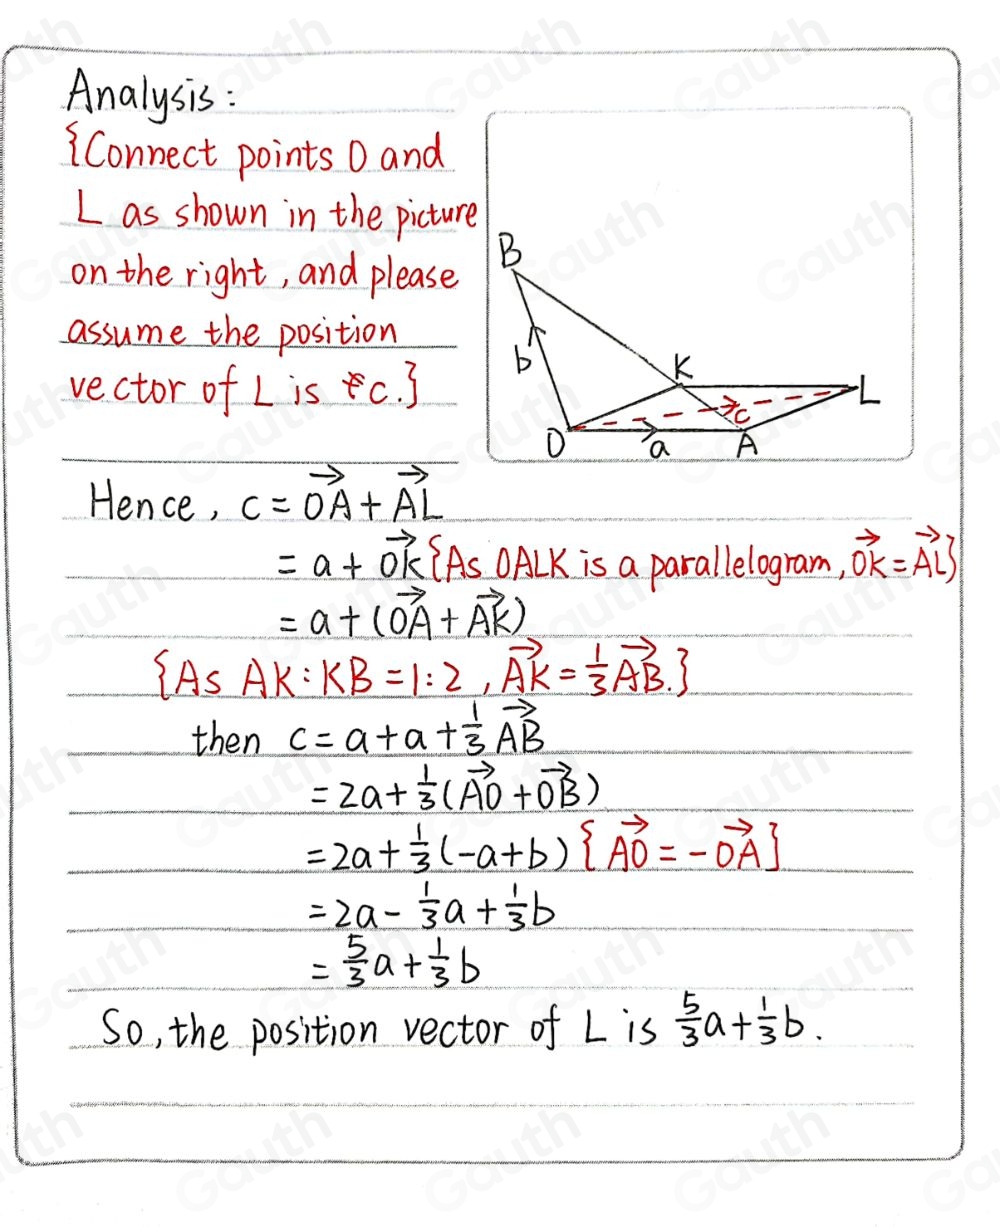 Analysis:
{Connect points O and
L as shown in the picture
on the right, and please
assume the position
vector of L is c.}
B
b
K
L
c
O
a
A
Hence, c = →OA + →AL
= a + →OK {As OALK is a parallelogram, →OK = →AL}
= a + (→OA + →AK)
{As AK:KB = 1:2, →AK = 1/3 →AB.}
then c = a + a + 1/3 →AB
= 2a + 1/3 (→AO + →OB)
= 2a + 1/3 (-a + b) {→AO = - →OA}
= 2a - 1/3 a + 1/3 b
= 5/3 a + 1/3 b
So, the position vector of L is 5/3 a + 1/3 b.
Gauth